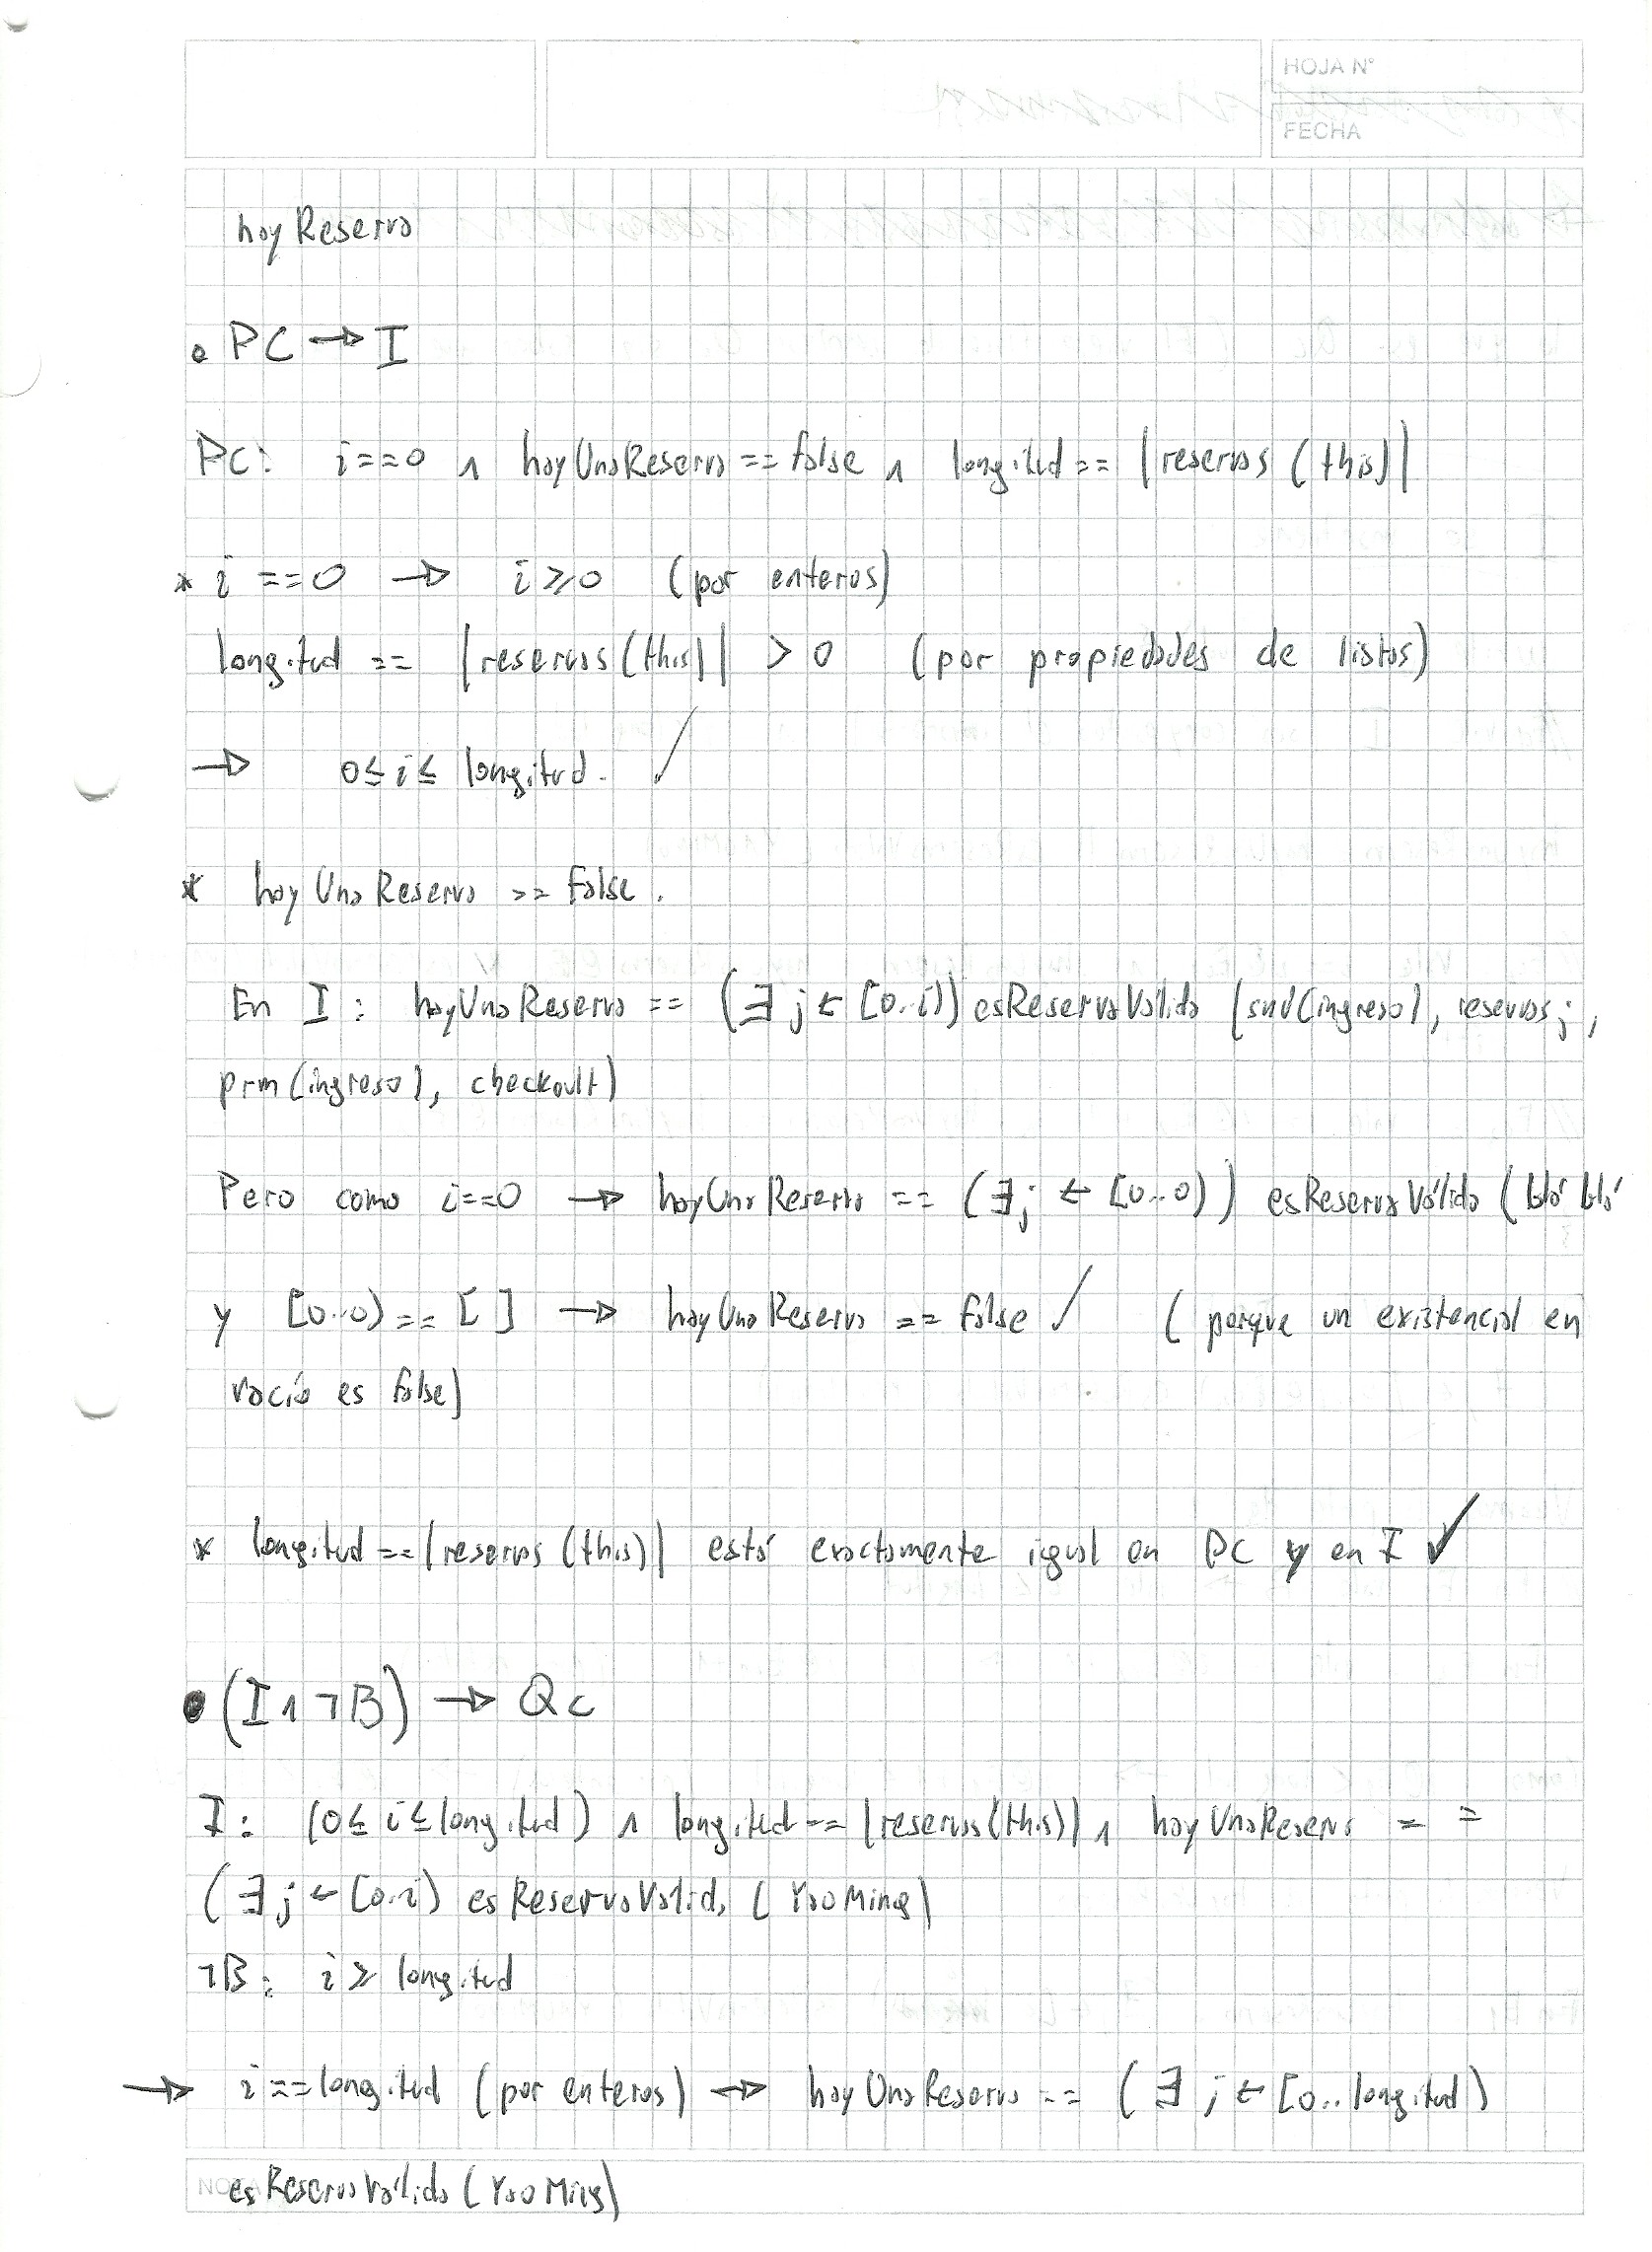 HOJA N°
FECHA
hayReserva
• PC → I
PC: i==0 ∧ hayUnaReserva == false ∧ longitud == |reservas (this)|
* i ==0 → i ≥ 0 (por enteros)
longitud == |reservas (this)| > 0 (por propiedades de listas)
→ 0 ≤ i ≤ longitud. ✓
* hayUnaReserva == false.
En I : hayUnaReserva == (∃ j ← [0..i)) esReservaVálida (snd(ingreso), reservas j ,
prm (ingreso), checkoult)
Pero como i==0 → hayUnaReserva == (∃ j ← [0..0)) esReservaVálida (blá blá
y [0..0) == [ ] → hayUnaReserva == false ✓ ( porque un existencial en
vacío es false)
* longitud == |reservas (this)| está exactamente igual en PC y en I ✓
• (I ∧ ¬B) → Qc
I : (0 ≤ i ≤ longitud) ∧ longitud == |reservas(this)| ∧ hayUnaReserva = =
( ∃ j ← [0..i) esReservaValida ( YaoMing)
¬B : i ≥ longitud
→ i == longitud (por enteros) → hayUnaReserva == ( ∃ j ← [0.. longitud)
esReservaVálida ( Yao Ming)